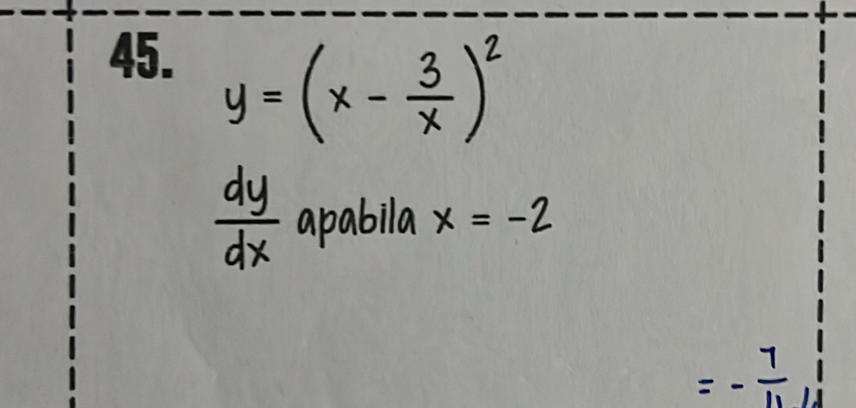 45.
y = (x - 3/x)²
dy/dx apabila x = -2
= - 7